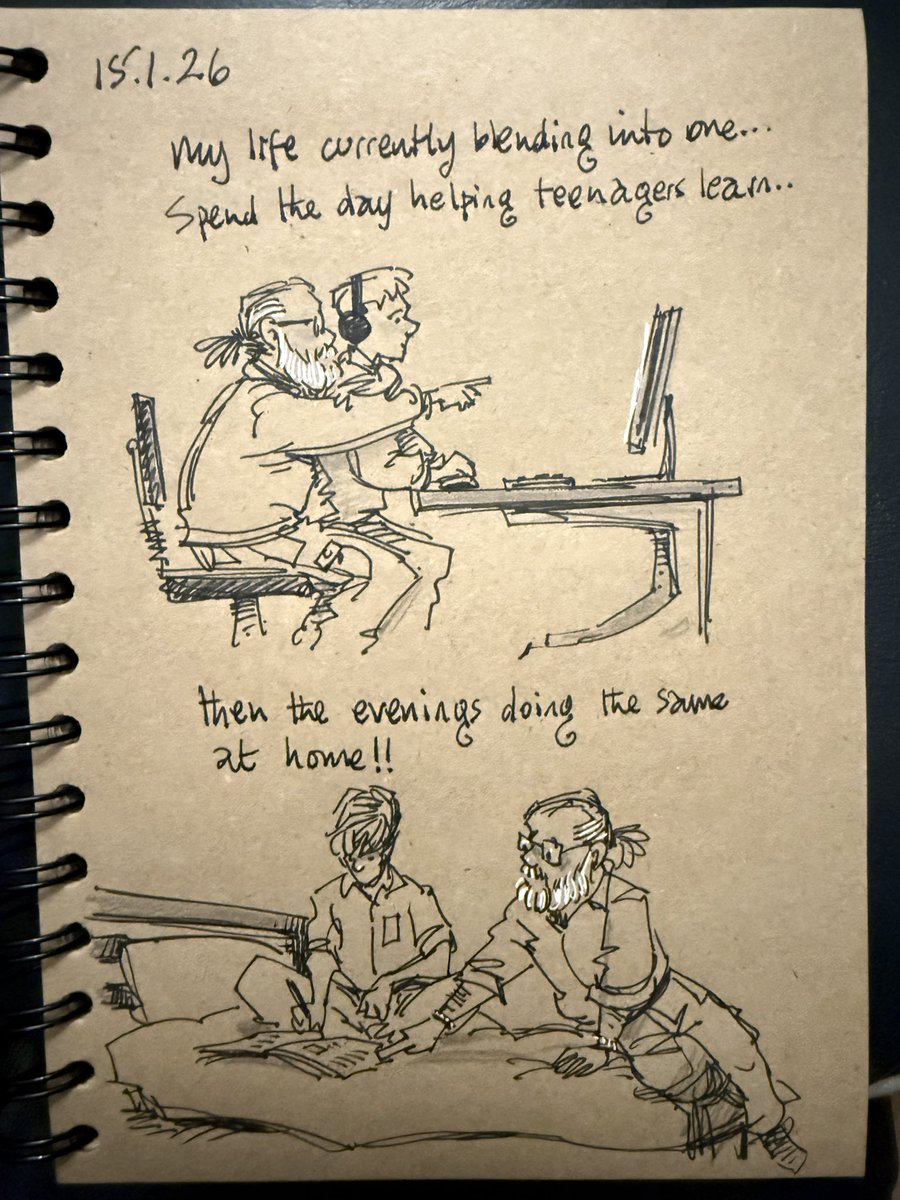 15.1.26
My life currently blending into one...
Spend the day helping teenagers learn..
then the evenings doing the same
at home!!